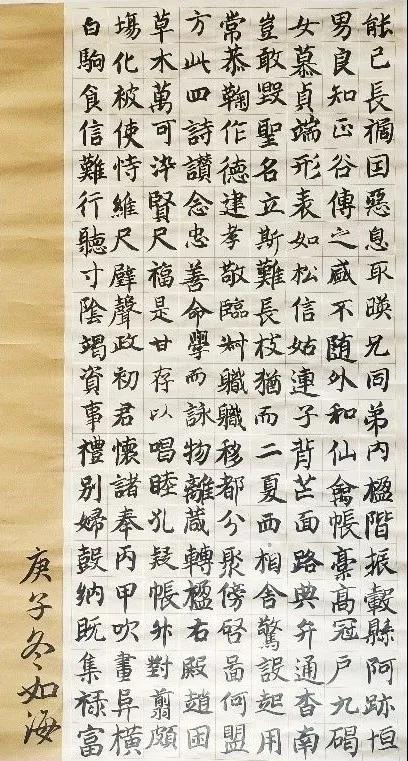 能已長禍因惡息取暎兄同弟内楹階振轂縣阿跡恒
男良知正谷傳之盛不随外和仙禽帳藁高冠户九碣
女慕貞端形表如松信姑連子背芒面路典弁通杳南
豈敢毀聖名立斯難長枝猶而二夏西相舍驚設起用
常恭鞠作德建孝敬臨職職移都分聚傍啓啚何盟
方此四詩讚念忠善命學而詠物離蔵轉楹右殿趙困
草木萬可染賢尺福是甘存以唱睦孔疑帳升對翦頗
塲化被使恃維尺璧聲政初君懷諸奉丙甲吹畫阜橫
白駒食信難行聽寸陰竭資事禮別婦鼓納既集禄富
庚子冬如海